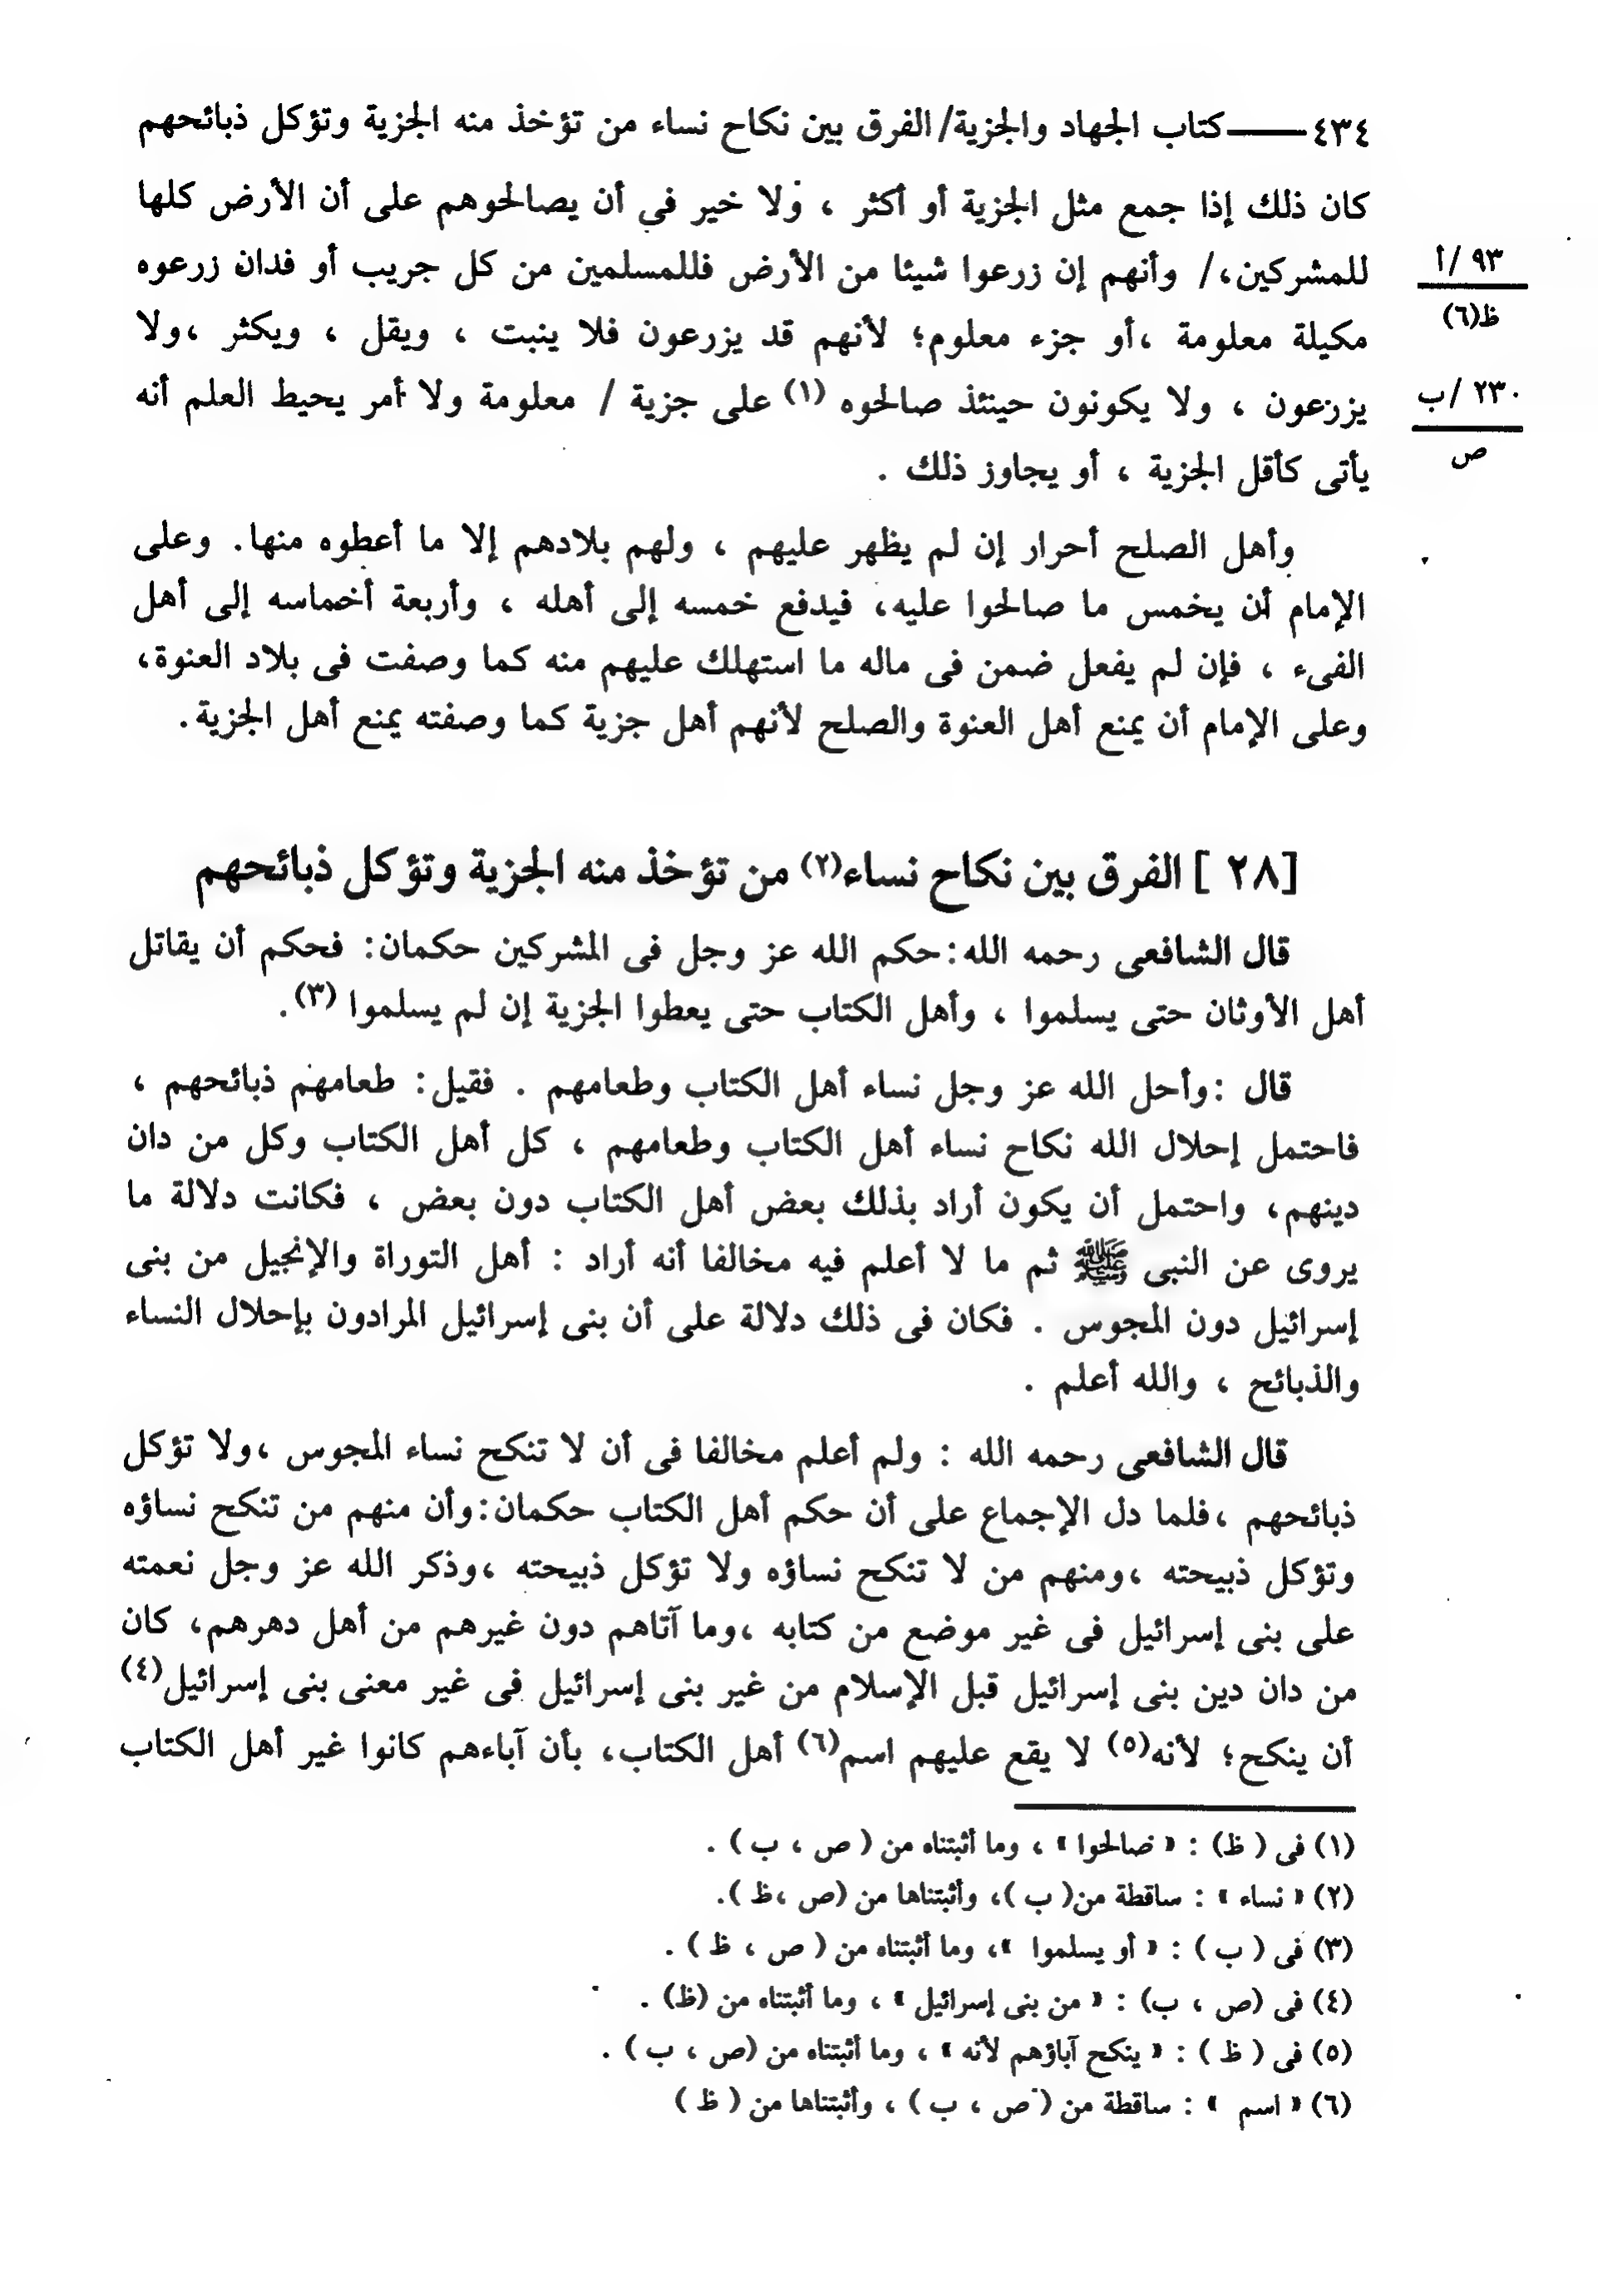 ٤٣٤ــــــ كتاب الجهاد والجزية/ الفرق بين نكاح نساء من تؤخذ منه الجزية وتؤكل ذبائحهم
كان ذلك إذا جمع مثل الجزية أو أكثر ، ولا خير فى أن يصالحوهم على أن الأرض كلها
للمشركين،/ وأنهم إن زرعوا شيئا من الأرض فللمسلمين من كل جريب أو فدان زرعوه
٩٣/ أ
ظ(٦)
مكيلة معلومة ،أو جزء معلوم؛ لأنهم قد يزرعون فلا ينبت ، ويقل ، ويكثر ،ولا
يزرعون ، ولا يكونون حينئذ صالحوه (١) على جزية / معلومة ولا أمر يحيط العلم أنه
٢٣٠/ ب
ص
يأتى كأقل الجزية ، أو يجاوز ذلك .
وأهل الصلح أحرار إن لم يظهر عليهم ، ولهم بلادهم إلا ما أعطوه منها. وعلى
الإمام أن يخمس ما صالحوا عليه، فيدفع خمسه إلى أهله ، وأربعة أخماسه إلى أهل
الفىء ، فإن لم يفعل ضمن فى ماله ما استهلك عليهم منه كما وصفت فى بلاد العنوة،
وعلى الإمام أن يمنع أهل العنوة والصلح لأنهم أهل جزية كما وصفته يمنع أهل الجزية.
[٢٨ ] الفرق بين نكاح نساء(٢) من تؤخذ منه الجزية وتؤكل ذبائحهم
قال الشافعى رحمه الله:حكم الله عز وجل فى المشركين حكمان: فحكم أن يقاتل
أهل الأوثان حتى يسلموا ، وأهل الكتاب حتى يعطوا الجزية إن لم يسلموا (٣).
قال :وأحل الله عز وجل نساء أهل الكتاب وطعامهم . فقيل: طعامهم ذبائحهم ،
فاحتمل إحلال الله نكاح نساء أهل الكتاب وطعامهم ، كل أهل الكتاب وكل من دان
دينهم، واحتمل أن يكون أراد بذلك بعض أهل الكتاب دون بعض ، فكانت دلالة ما
يروى عن النبى ﷺ ثم ما لا أعلم فيه مخالفا أنه أراد : أهل التوراة والإنجيل من بنى
إسرائيل دون المجوس . فكان فى ذلك دلالة على أن بنى إسرائيل المرادون بإحلال النساء
والذبائح ، والله أعلم .
قال الشافعى رحمه الله : ولم أعلم مخالفا فى أن لا تنكح نساء المجوس ،ولا تؤكل
ذبائحهم ،فلما دل الإجماع على أن حكم أهل الكتاب حكمان:وأن منهم من تنكح نساؤه
وتؤكل ذبيحته ،ومنهم من لا تنكح نساؤه ولا تؤكل ذبيحته ،وذكر الله عز وجل نعمته
على بنى إسرائيل فى غير موضع من كتابه ،وما آتاهم دون غيرهم من أهل دهرهم، كان
من دان دين بنى إسرائيل قبل الإسلام من غير بنى إسرائيل فى غير معنى بنى إسرائيل(٤)
أن ينكح؛ لأنه(٥) لا يقع عليهم اسم(٦) أهل الكتاب، بأن آباءهم كانوا غير أهل الكتاب
(١) فى ( ظ) : « صالحوا » ، وما أثبتناه من ( ص ، ب ) .
(٢) « نساء » : ساقطة من( ب )، وأثبتناها من (ص ،ظ ).
(٣) فى ( ب ) : « أو يسلموا »، وما أثبتناه من ( ص ، ظ ) .
(٤) فى (ص ، ب) : « من بنى إسرائيل » ، وما أثبتناه من (ظ) .
(٥) فى ( ظ ) : « ينكح آباؤهم لأنه » ، وما أثبتناه من (ص ، ب ) .
(٦) « اسم » : ساقطة من ( ص ، ب ) ، وأثبتناها من ( ظ )